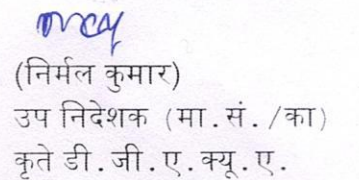 (निर्मल कुमार)
उप निदेशक (मा.सं./का)
कृते डी.जी.ए.क्यू.ए.